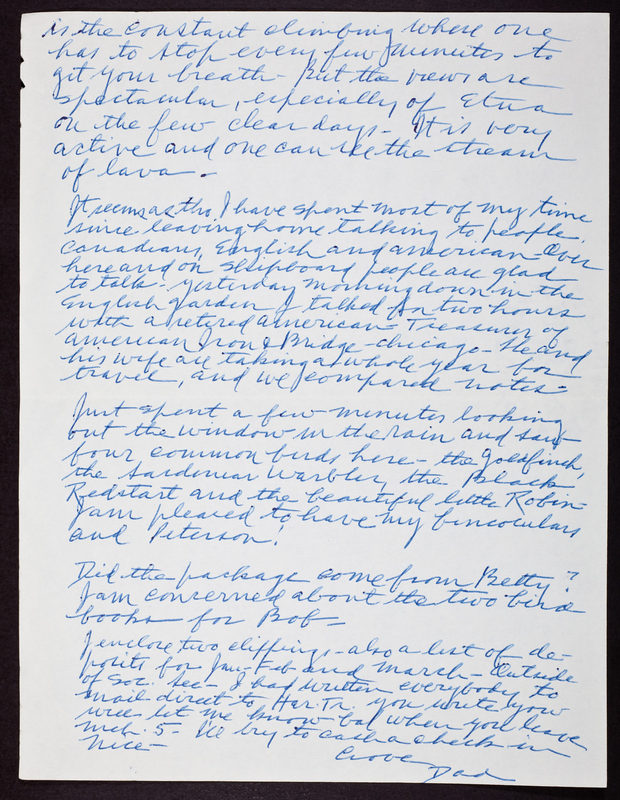 is the constant climbing where one
has to stop every few minutes to
get your breath - But the views are
spectacular, especially of Etna
on the few clear days - It is very
active and one can see the stream
of lava -
It seems as tho, I have spent most of my time
since leaving home talking to people,
Canadians, English and American - Over
here and on shipboard people are glad
to talk - yesterday morning down in the
English garden I talked for two hours
with a retired American - Treasurer of
American Iron & Bridge - Chicago - He and
his wife are taking a whole year for
travel, and we compared notes -
Just spent a few minutes looking
out the window in the rain and saw
four common birds here - the Goldfinch,
the Sardinian Warbler, the Black
Redstart and the beautiful little Robin -
I am pleased to have my binoculars
and Peterson!
Did the package come from Betty?
I am concerned about the two bird
books for Bob -
I enclose two clippings - also a list of de-
posits for Jan - Feb and March - Outside
of Soc. Sec - I had written everybody to
mail direct to Har. Tr. you wrote you
will let me know - bal when you leave
Mch. 5 - Ill try to cash a check in
Nice -
Love
Dad